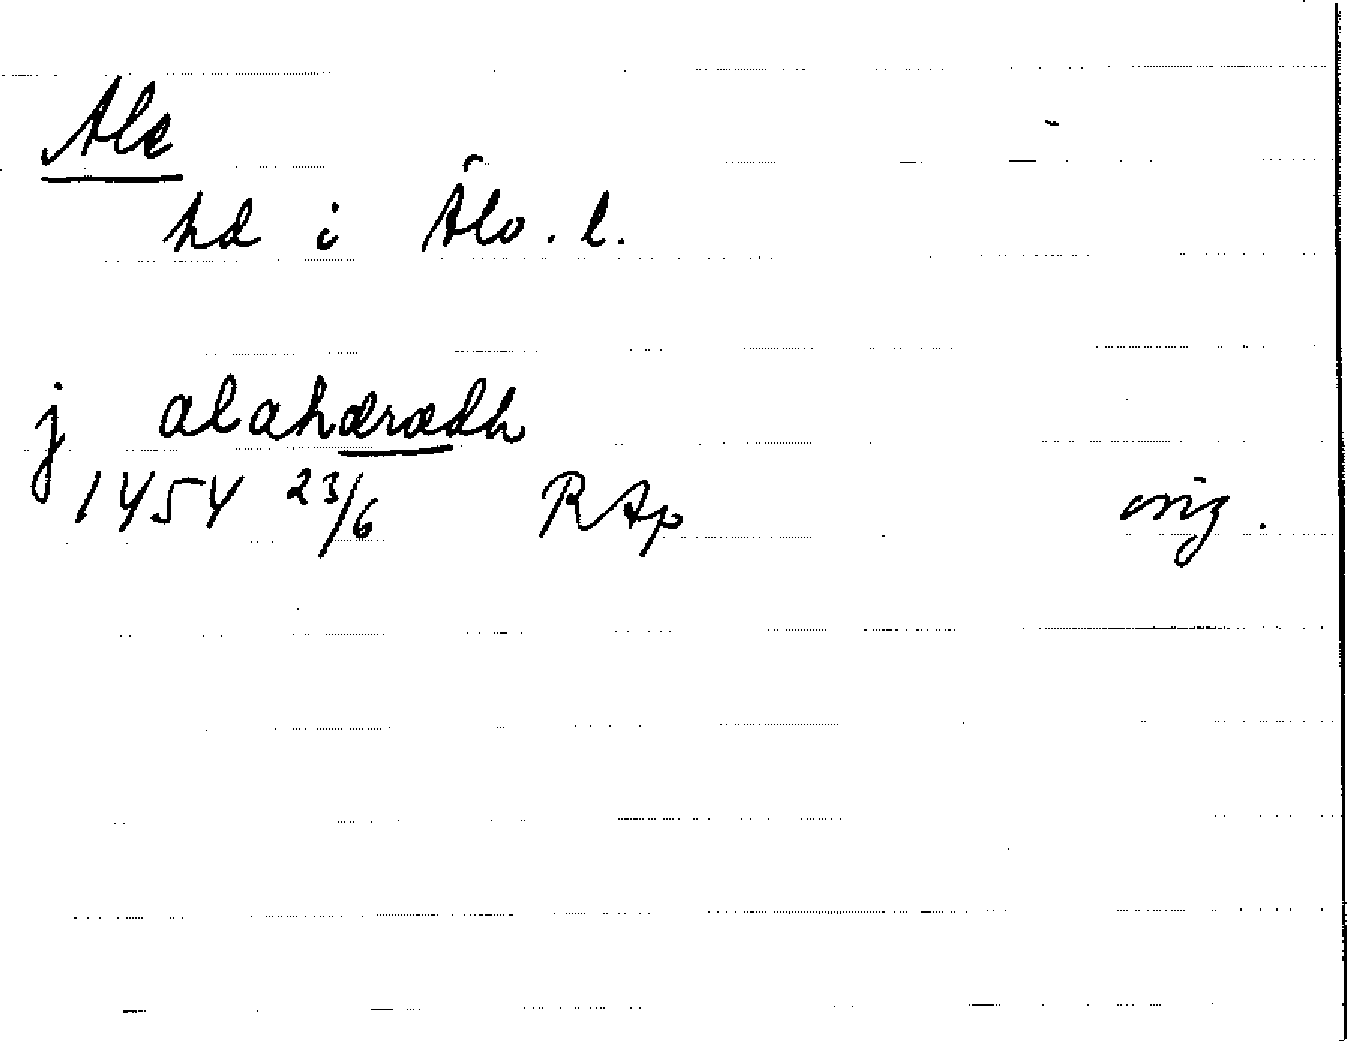 Ale
hd i Älv. l.
j alahæradh
1454 23/6 RAp orig.